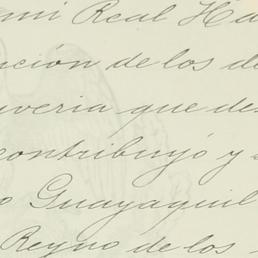 mi Real Ha
ción de los de
que de
contribuyó y
Guayaquil
Reyno de los